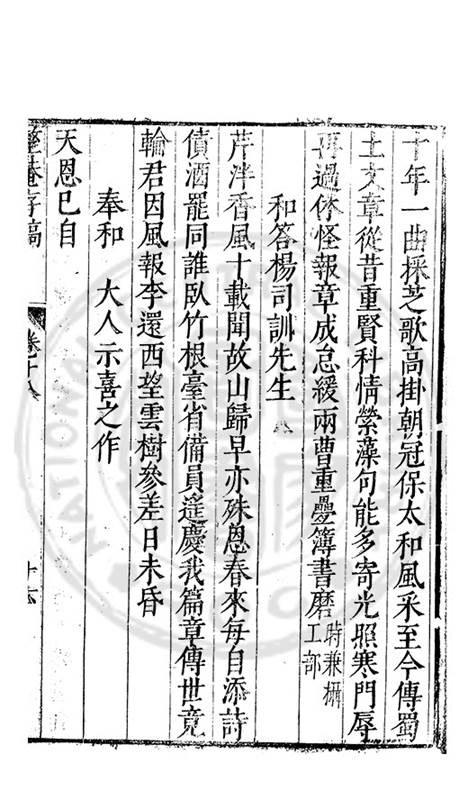 十年一曲採芝歌高掛朝冠保太和風采至今傳蜀
土文章從昔重賢科情縈藻句能多寄光照寒門辱
再過休怪報章成怠緩兩曹重疊簿書磨時兼攝工部
和答楊司訓先生
芹泮香風十載聞故山歸早亦殊恩春來每自添詩
債酒罷同誰臥竹根臺省備員遙慶我篇章傳世竟
輸君因風報李還西望雲樹參差日未昏
奉和 大人示喜之作
天恩已自
整菴存稿 卷十八 十六